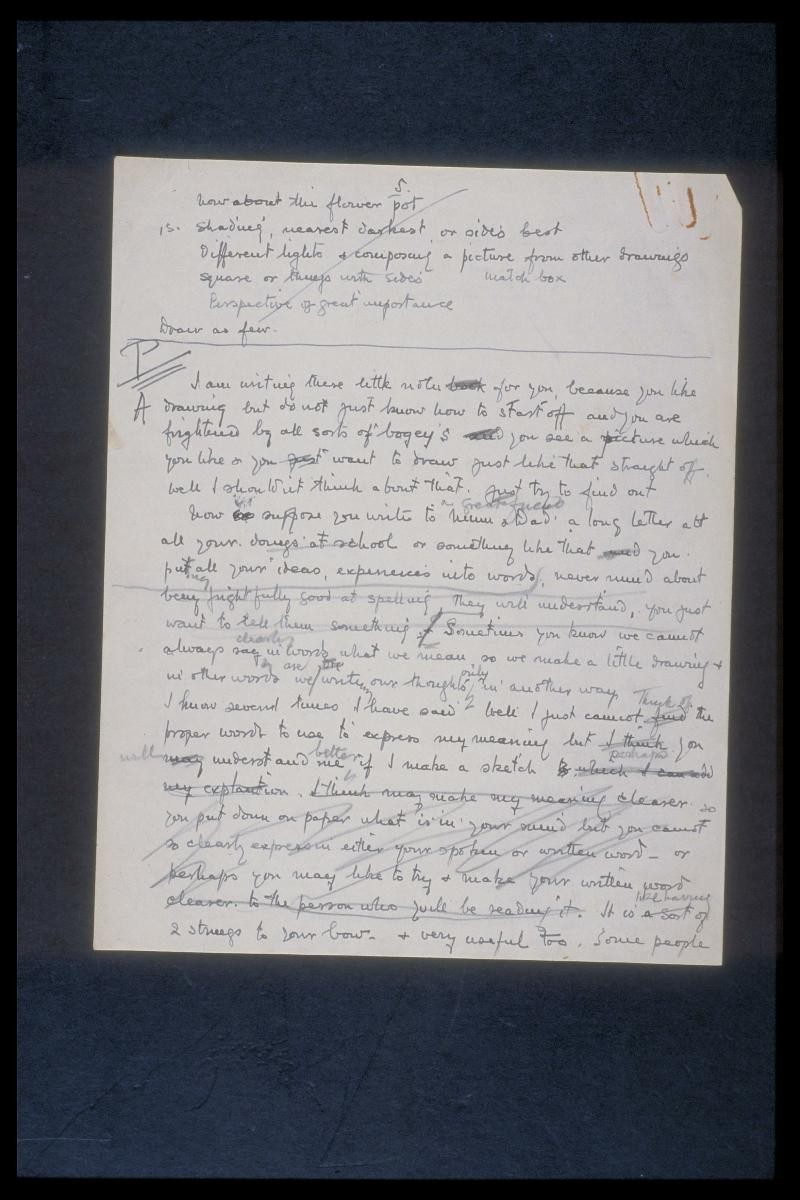 5.
now about this flower pot
15. Shading, nearest darkest or sides best
Different lights & composing a picture from other drawings
Square or things with sides match box
Perspective of great importance
Draw as few.
P
I am writing these little notes book for you, because you like
A drawing but do not just know how to start off and you are
frightened by all sorts of bogey's and you see a picture which
you like & you just want to draw just like that straight off.
Well I shouldn't think about that. Just try to find out
a great friend
Now suppose you write to Mum & Dad a long letter abt
all your doings at school or something like that and you
put all your ideas, experiences into words, never mind about
ing
being frightfully good at spelling, they will understand, you just
want to tell them something. Sometimes you know we cannot
clearly
always say in words what we mean so we make a little drawing &
are only
in other words we write our thoughts in another way
Think of
I know several times I have said "Well I just cannot find the
proper words to use to express my meaning but I think you
will better perhaps
may understand me if I make a sketch which I can add
my explantion. I think may make my meaning clearer. so
you put down on paper what is in your mind but you cannot
so clearly express in either your spoken or written word – or
perhaps you may like to try & make your written word
like having
clearer. to the person who will be reading it. It is a sort of
2 strings to your bow – & very useful too. Some people